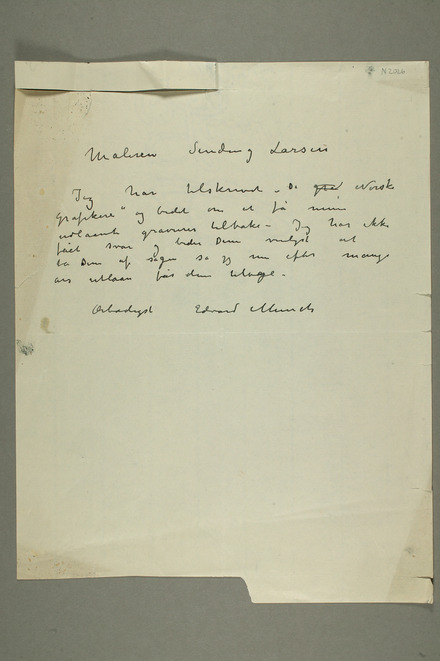 N 2026
Maleren Sinding Larsen
Jeg har tilskrevet „De grad Norske
Grafikere" og bedet om at få mine
udlaante gravurer tilbake – Jeg har ikke
fået svar og beder Dem venligst at
ta Dem af sagen så jeg nu efter mange
års utlaan får dem tilbage –
Ærbødigst Edvard Munch